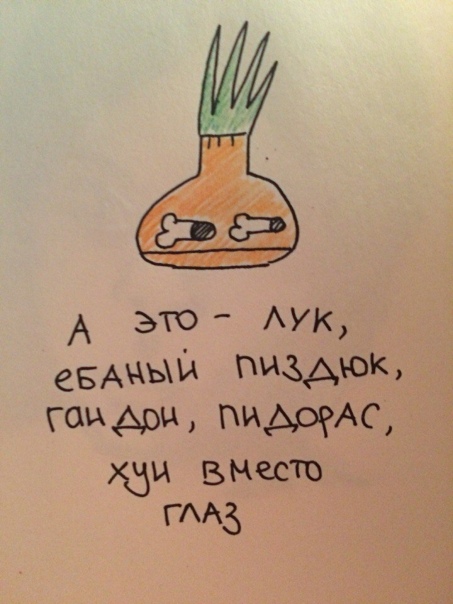 А ЭТО - ЛУК,
еБАНЫЙ ПИЗДЮК,
ГАНДОН, ПИДОРАС,
ХУИ ВМеСТО
ГЛАЗ